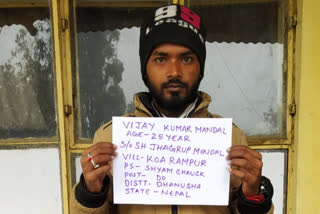 99
VIJAY KUMAR MANDAL
AGE-25 YEAR
S/O SH JHAGRUP MONDAL
VILL-KOA RAMPUR
PS- SHYAM CHAUCK
POST- DO
DISTT- DHANUSHA
STATE- NEPAL